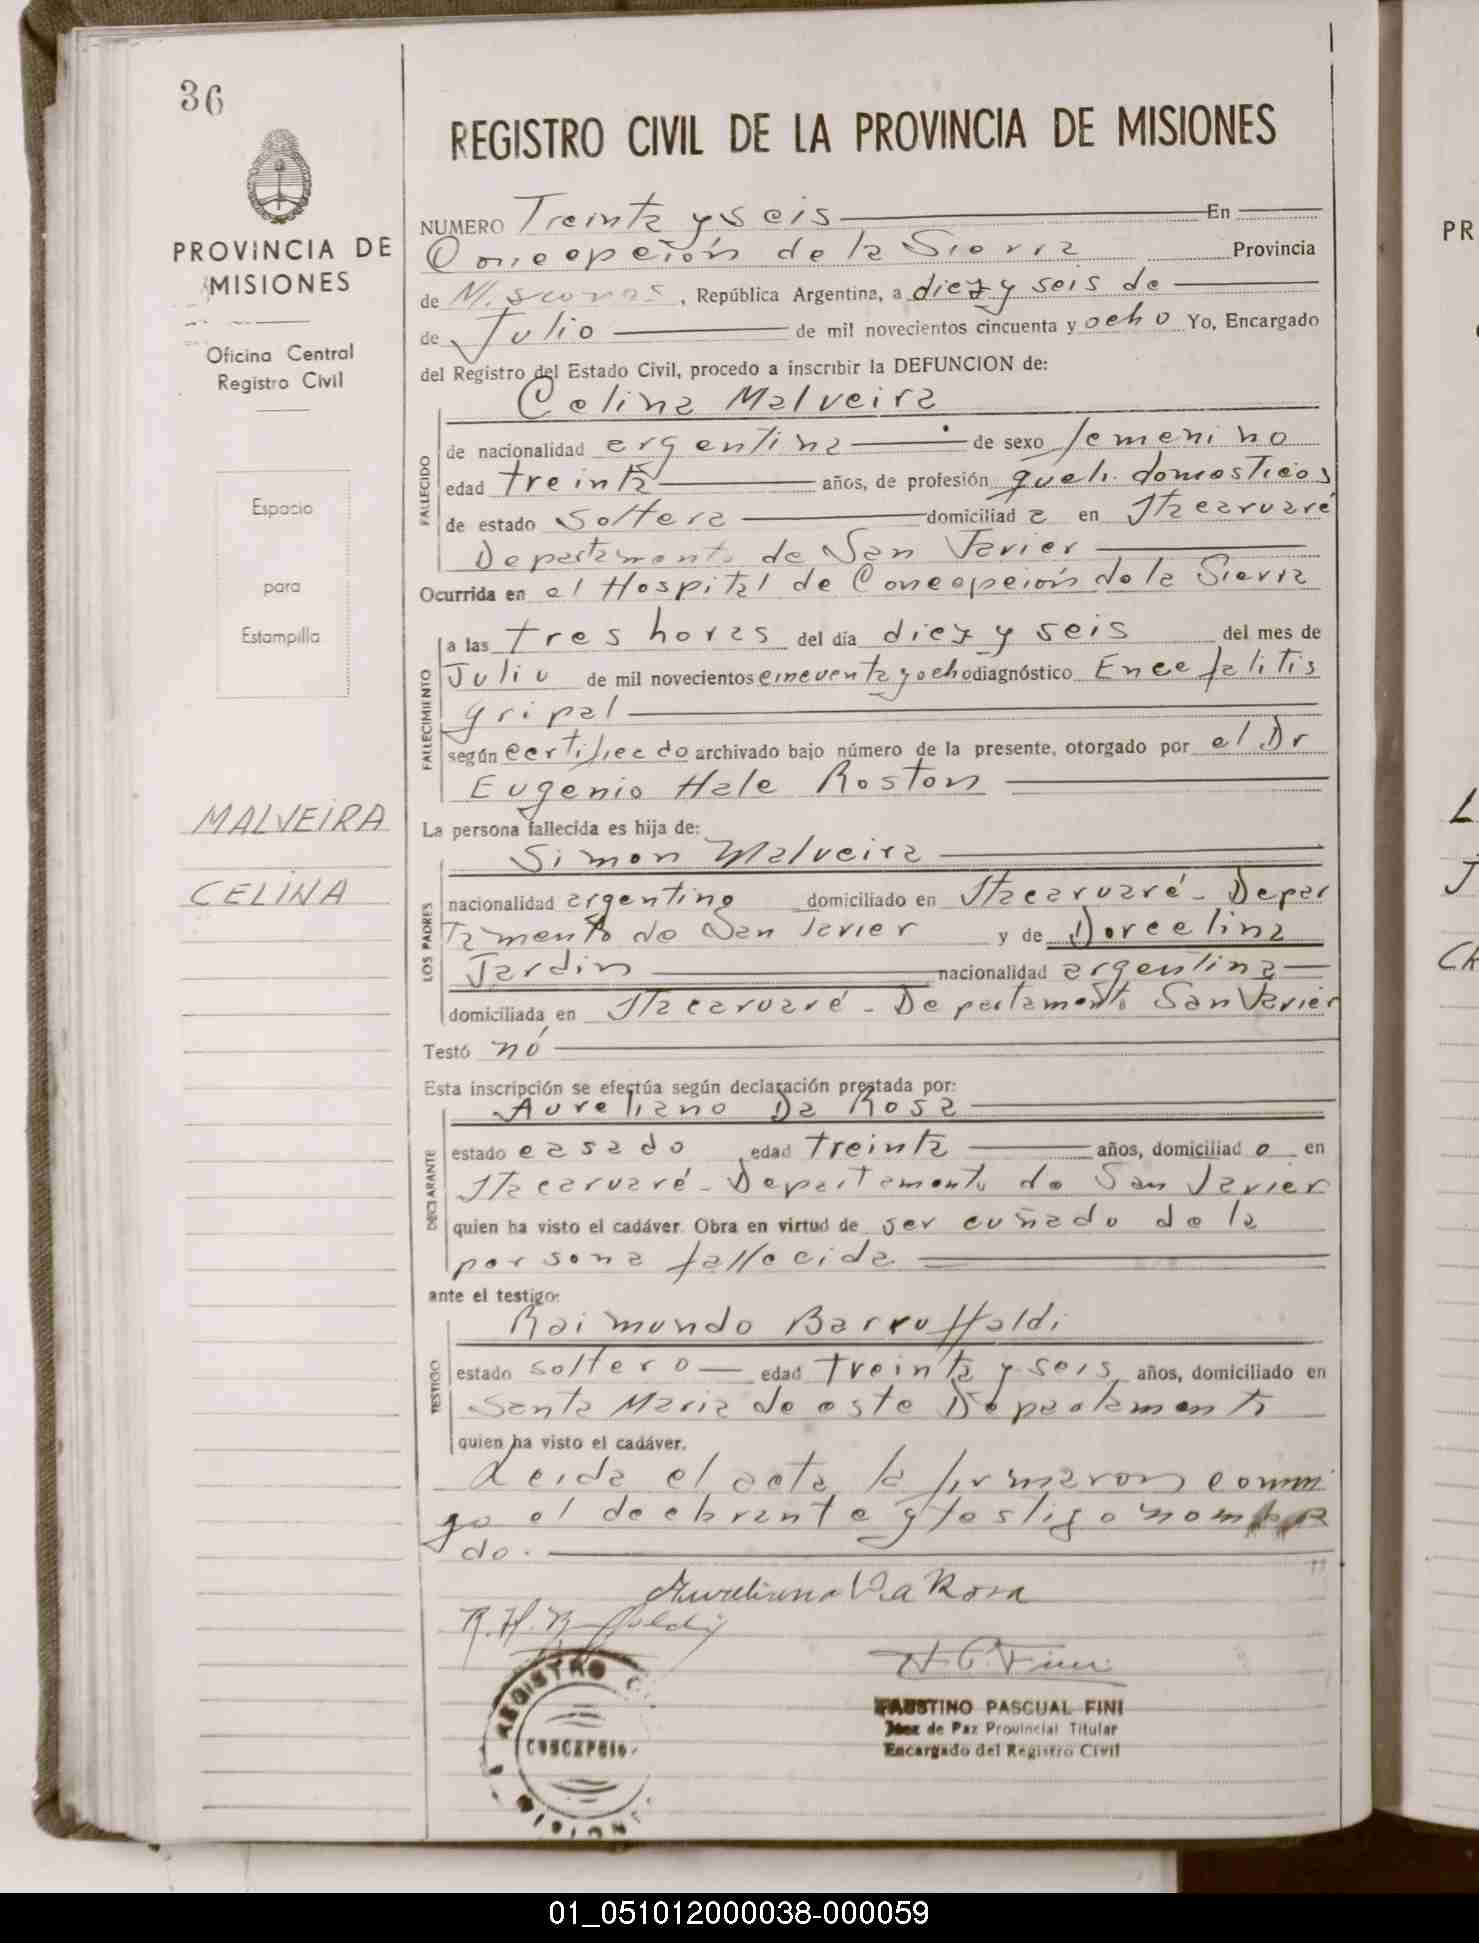 36
PROVINCIA DE
MISIONES
Oficina Central
Registro Civil
Espacio
para
Estampilla
MALVEIRA
CELINA
REGISTRO CIVIL DE LA PROVINCIA DE MISIONES
NUMERO Treinta y seis En
Concepción de la Sierra Provincia
de Misiones, República Argentina, a diez y seis de
de Julio de mil novecientos cincuenta y ocho Yo, Encargado
del Registro del Estado Civil, procedo a inscribir la DEFUNCION de:
Celina Malveira
FALLECIDO
de nacionalidad argentina de sexo femenino
edad treinta años, de profesión queh. domesticos
de estado soltera domiciliad a en Itacaruaré
Departamento de San Javier
Ocurrida en el Hospital de Concepción de la Sierra
FALLECIMIENTO
a las tres horas del día diez y seis del mes de
Julio de mil novecientos cincuenta y ocho diagnóstico Encefalitis
gripal
según certificado archivado bajo número de la presente, otorgado por el Dr
Eugenio Hale Roston
La persona fallecida es hija de:
Simon Malveira
LOS PADRES
nacionalidad argentino domiciliado en Itacaruaré - Depar
tamento de San Javier y de Dorcelina
Jardin nacionalidad argentina
domiciliada en Itacaruaré - Departamento San Javier
Testó nó
Esta inscripción se efectúa según declaración prestada por:
Aureliano Da Rosa
DECLARANTE
estado casado edad treinta años, domiciliad o en
Itacaruaré - Departamento de San Javier
quien ha visto el cadáver. Obra en virtud de ser cuñado de la
persona fallecida
ante el testigo:
Raimundo Barruffaldi
TESTIGO
estado soltero edad treinta y seis años, domiciliado en
Santa Maria de este Departamento
quien ha visto el cadáver.
Leida el acta la firmaron conmi
go el declarante y testigo nombra
do.
Aureliano Da Rosa
FAUSTINO PASCUAL FINI
Juez de Paz Provincial Titular
Encargado del Registro Civil
REGISTRO
MISIONES
PR
01_051012000038-000059